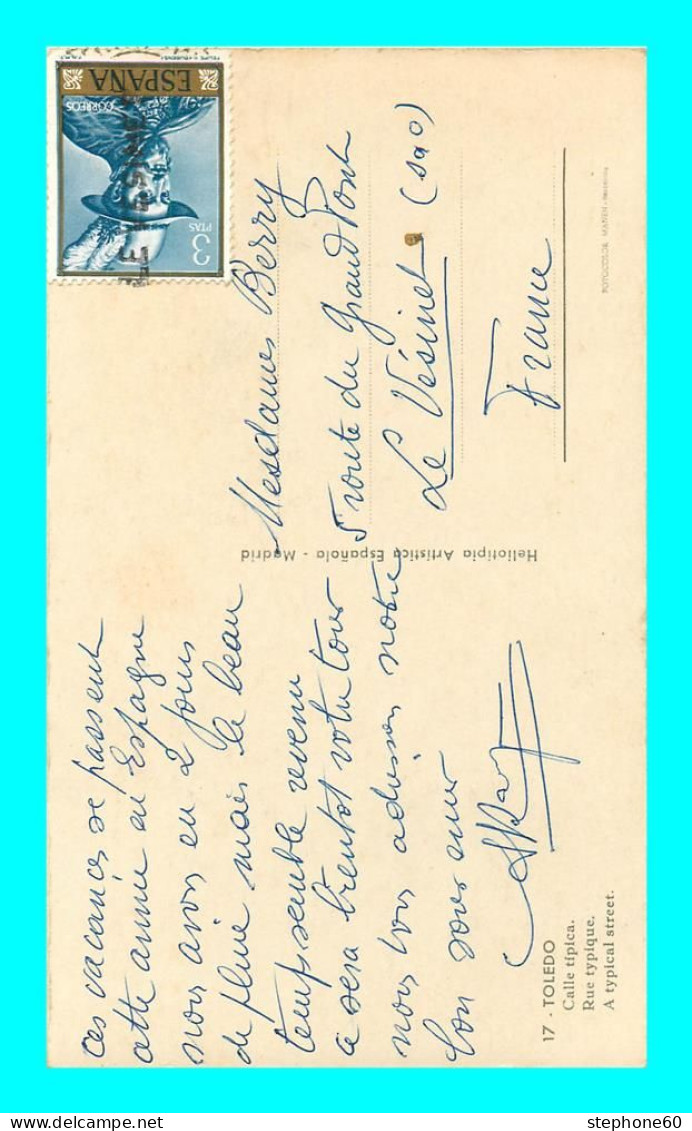 ces vacances se passent
cette année en Espagne
nous avons eu 2 jours
de pluie mais le beau
temps semble revenu
ce sera bientot votre tour
nous vous adressons notre
bon souvenir
17 - TOLEDO
Calle típica.
Rue typique.
A typical street.
Heliotipia Artística Española - Madrid
ESPAÑA
CORREOS
3 PTAS
Mesdames Berry
5 route du Grand Pont
Le Vésinet (S&O)
France
FOTOCOLOR
stephone60